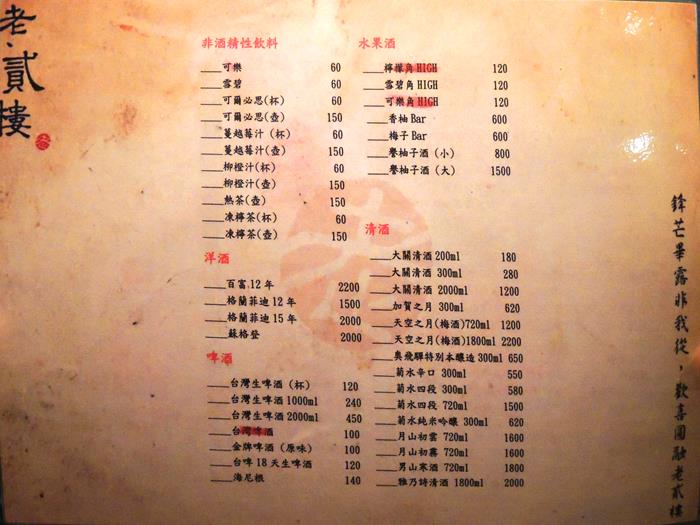 老·貳樓
非酒精性飲料
____可樂 60
____雪碧 60
____可爾必思(杯) 60
____可爾必思(壺) 150
____蔓越莓汁(杯) 60
____蔓越莓汁(壺) 150
____柳橙汁(杯) 60
____柳橙汁(壺) 150
____熱茶(壺) 150
____凍檸茶(杯) 60
____凍檸茶(壺) 150
洋酒
____百富12年 2200
____格蘭菲迪12年 1500
____格蘭菲迪15年 2000
____蘇格登 2000
啤酒
____台灣生啤酒(杯) 120
____台灣生啤酒1000ml 240
____台灣生啤酒2000ml 450
____台灣啤酒 100
____金牌啤酒(原味) 100
____台啤18天生啤酒 120
____海尼根 140
水果酒
____檸檬角HIGH 120
____雪碧角HIGH 120
____可樂角HIGH 120
____香柚Bar 600
____梅子Bar 600
____譽柚子酒(小) 800
____譽柚子酒(大) 1500
清酒
____大關清酒200ml 180
____大關清酒300ml 280
____大關清酒2000ml 1200
____加賀之月 300ml 620
____天空之月(梅酒)720ml 1200
____天空之月(梅酒)1800ml 2200
____奧飛驒特別本釀造300ml 650
____菊水辛口 300ml 550
____菊水四段 300ml 580
____菊水四段 720ml 1500
____菊水純米吟釀 300ml 620
____月山初雲 720ml 1600
____月山初霧 720ml 1600
____男山寒酒 720ml 1800
____雅乃詩清酒 1800ml 2000
鋒芒畢露非我從，歡喜圓融老貳樓